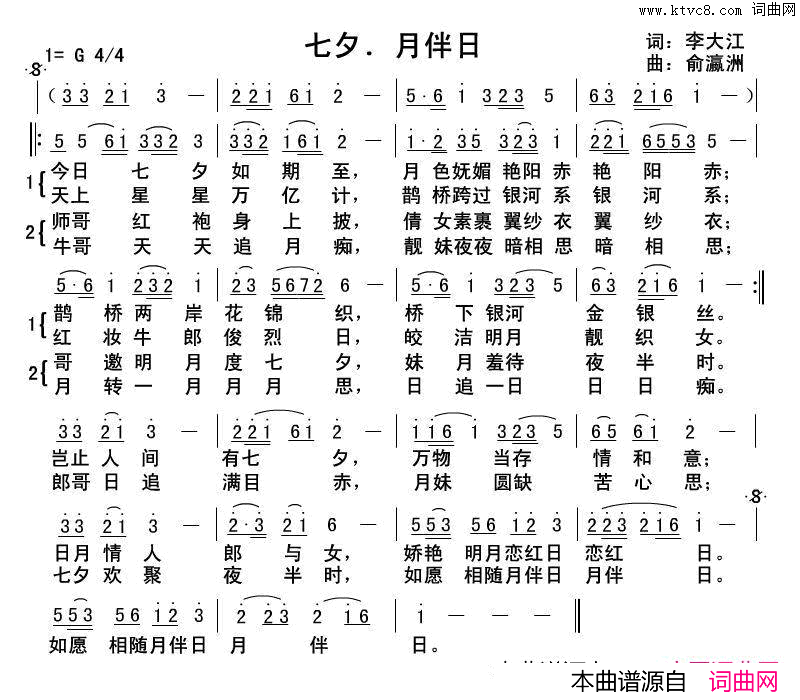 www.ktvc8.com 词曲网
七夕．月伴日
1= G 4/4
词：李大江
曲：俞瀛洲
（ 3 3 2 1 3 － | 2 2 1 6 1 2 － | 5 · 6 1 3 2 3 5 | 6 3 2 1 6 1 － ）
5 5 6 1 3 3 2 3 | 3 3 2 1 6 1 2 － | 1 · 2 3 5 3 2 3 1 | 2 2 1 6 5 5 3 5 －
1 今日 七 夕 如 期 至， 月 色妩媚 艳阳 赤 艳 阳 赤；
天上 星 星 万 亿 计， 鹊 桥跨过 银河 系 银 河 系；
2 师哥 红 袍 身 上 披， 倩 女素裹 翼纱 衣 翼 纱 衣；
牛哥 天 天 追 月 痴， 靓 妹夜夜 暗相 思 暗 相 思；
5 · 6 1 2 3 2 1 | 2 3 5 6 7 2 6 － | 5 · 6 1 3 2 3 5 | 6 3 2 1 6 1 －
1 鹊 桥 两 岸 花 锦 织， 桥 下 银河 金 银 丝。
红 妆 牛 郎 俊 烈 日， 皎 洁 明月 靓 织 女。
2 哥 邀 明 月 度 七 夕， 妹 月 羞待 夜 半 时。
月 转 一 月 月 月 思， 日 追 一日 日 日 痴。
3 3 2 1 3 － | 2 2 1 6 1 2 － | 1 1 6 1 3 2 3 5 | 6 5 6 1 2 －
岂止 人 间 有七 夕， 万物 当存 情 和 意；
郎哥 日 追 满目 赤， 月妹 圆缺 苦 心 思；
3 3 2 1 3 － | 2 · 3 2 1 6 － | 5 5 3 5 6 1 2 3 | 2 2 3 2 1 6 1 －
日月 情 人 郎 与 女， 娇艳 明月恋红日 恋红 日。
七夕 欢 聚 夜 半 时， 如愿 相随月伴日 月伴 日。
5 5 3 5 6 1 2 3 | 2 2 3 2 1 6 | 1 － －
如愿 相随月伴日 月 伴 日。
本曲谱源自 词曲网